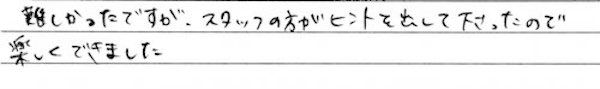 難しかったですが、スタッフの方がヒントを出して下さったので
楽しくできました